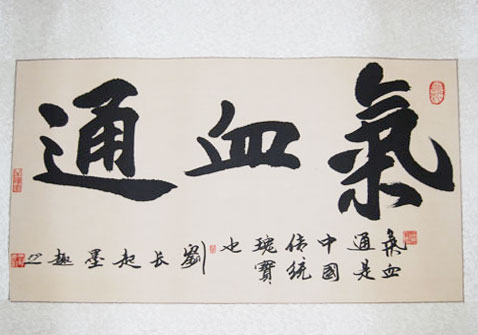 氣血通
氣血
通是
中國
传統
瑰寶
也
劉长起墨趣